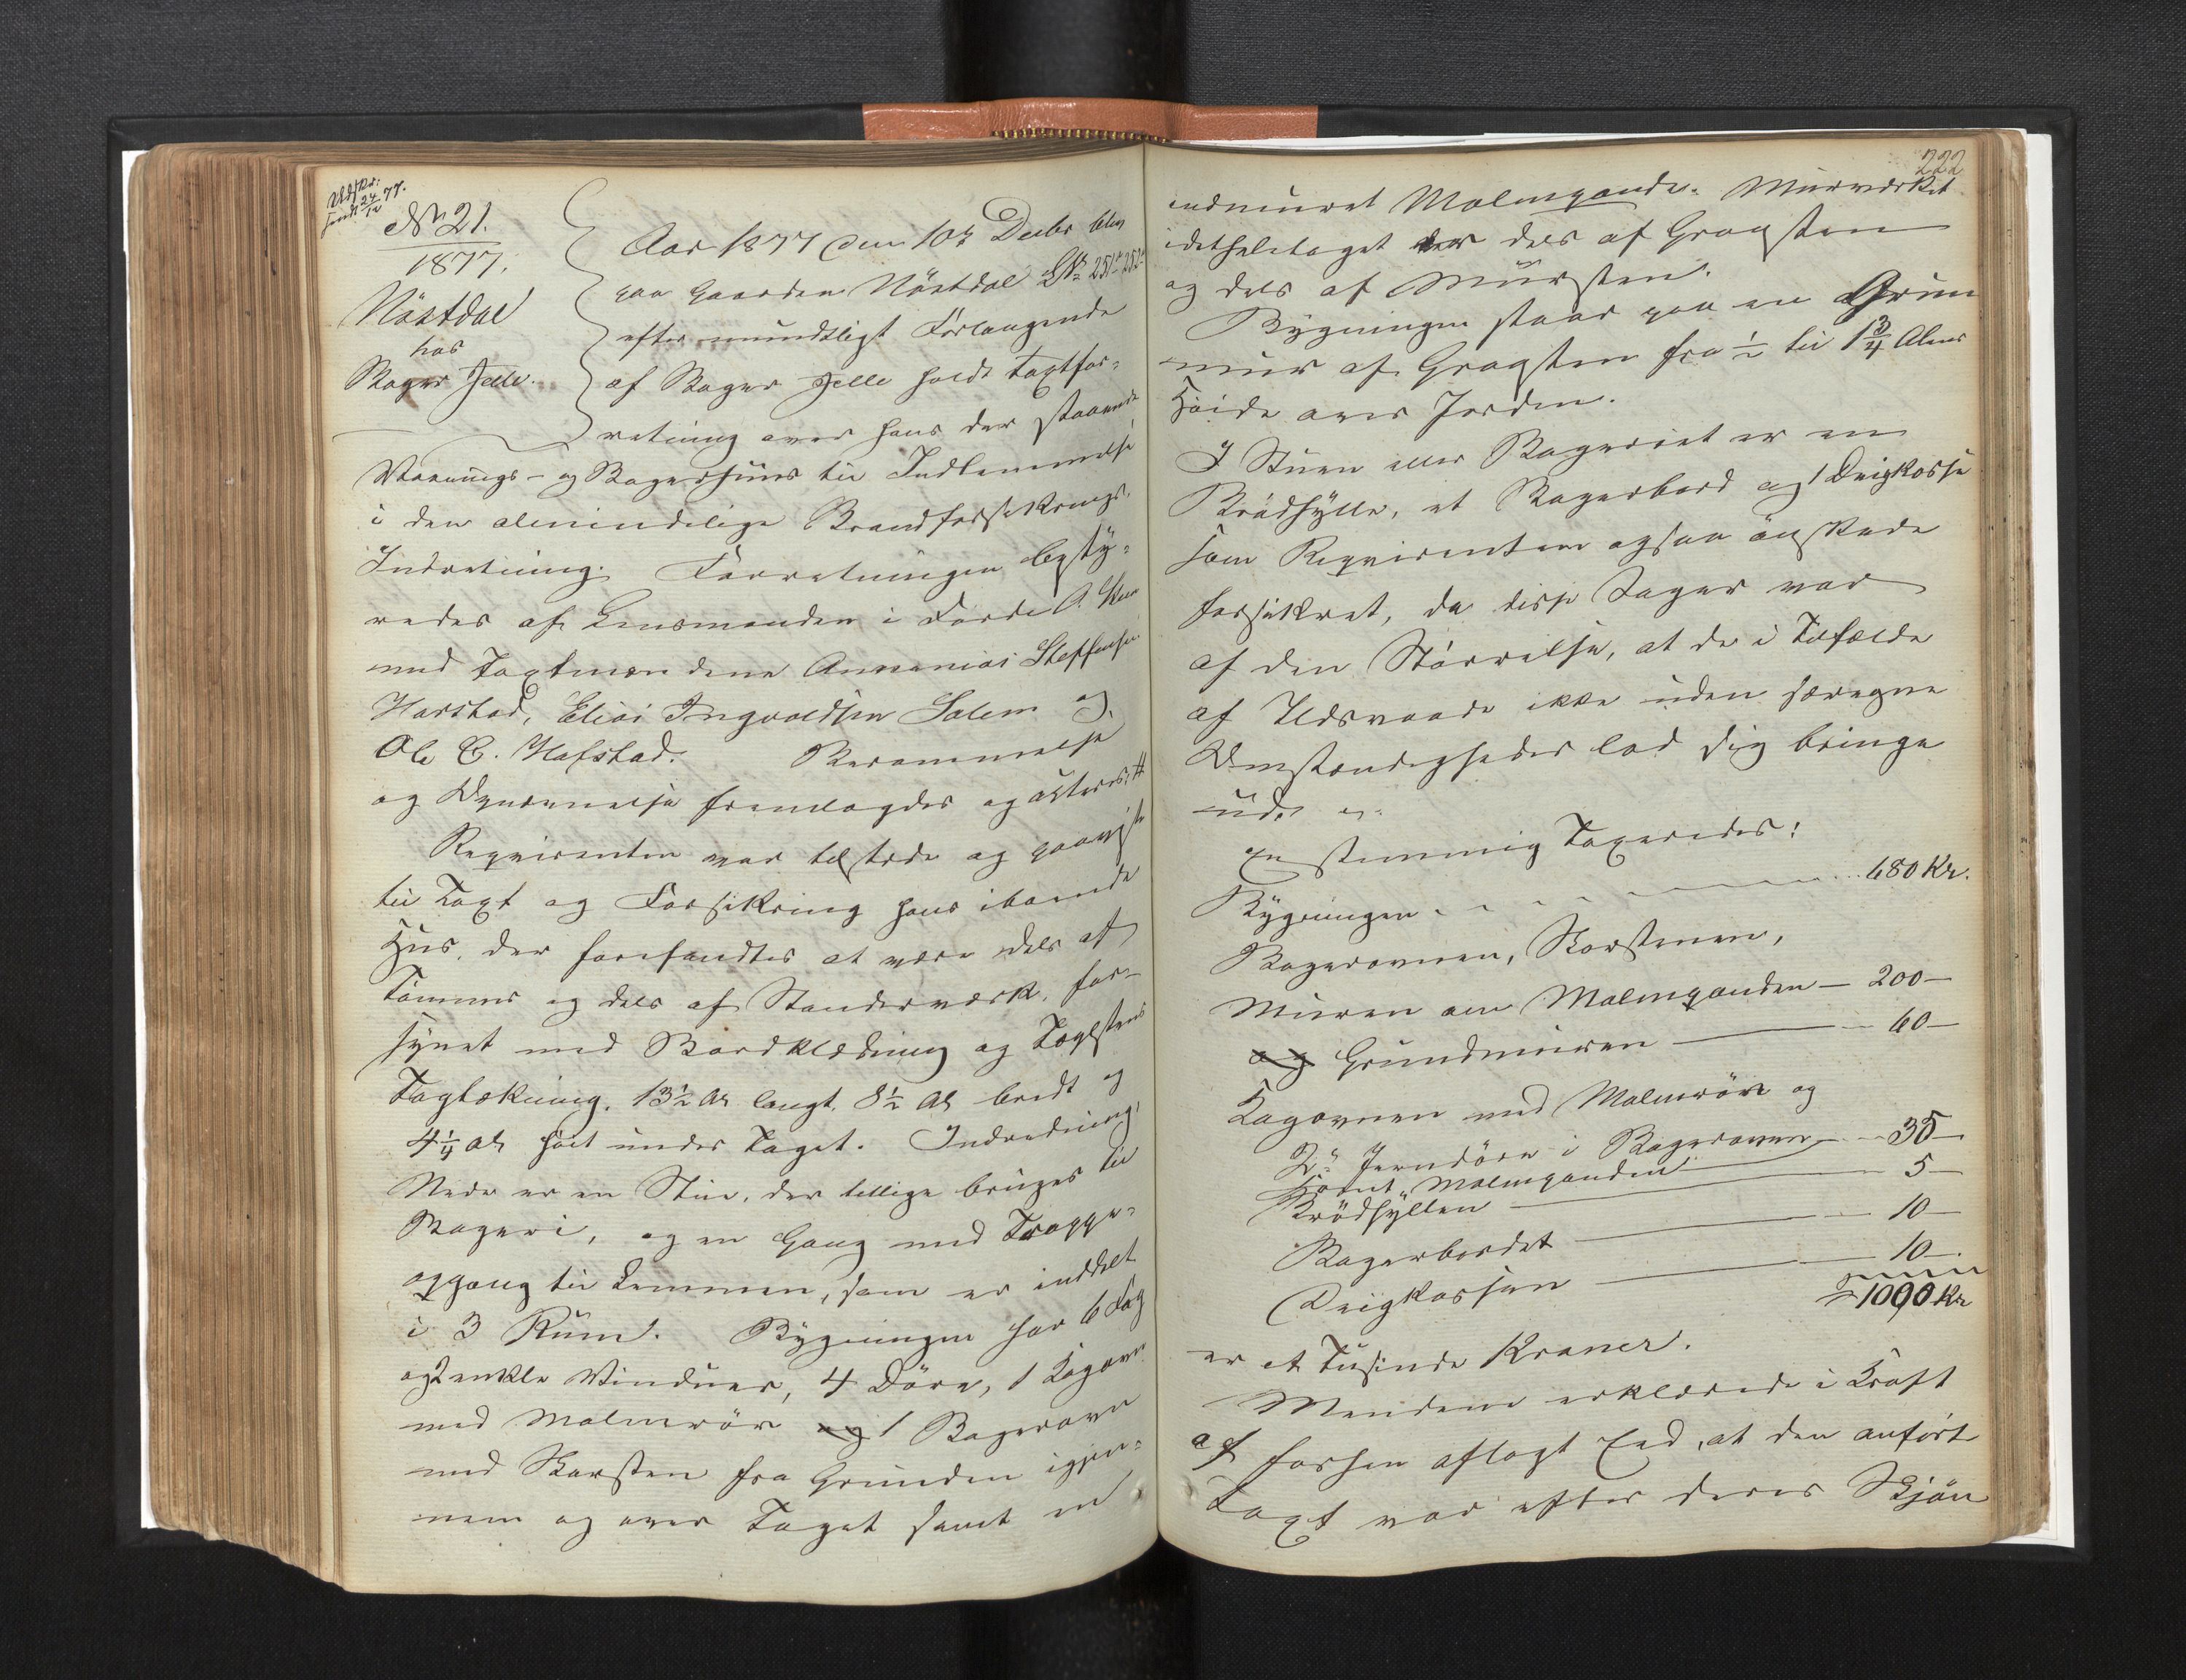 Udskr:
sendt 24/12 77.
No 21.
1877.
Nöstdal
hos
Bager Jelle.
Aar 1877 den 10de Decbr blev
paa Gaarden Nöstdal LNo 251a 252a
efter mundtligt Forlangende
af Bager Jelle holdt Taxtfor-
retning over hans der staaende
Vaanings- og Bagerhuus til Indlemmelse
i den almindelige Brandforsikrings-
Indretning. Forretningen besty-
redes af Lensmanden i Förde A.
med Taxtmændene Annanias Steffensen
Harstad, Elias Ingvaldsen Solem og
Ole E. Hafstad. Berammelse
og Opnævnelse fremlagdes og
Reqvirenten var tilstæde og paaviste
til Taxt og Forsikring hans iboende
Huus, der forefandtes at være dels af
Tömmer og dels af Standerværk, for-
synet med Bordklædning og Teglsteens
Tagtækning, 13½ Al langt, 8½ Al bredt og
4¼ Al höit under Taget. Indredning:
Nede er en Stue, der tillige bruges til
Bageri, og en Gang med Trappe-
opgang til Lemmen, som er inddelt
i 3 Rum. Bygningen har 6 Fag
og 2 enkle Vinduer, 4 Döre, 1 Kogovn
med Malmrör og 1 Bagerovn
med Skorsten fra Grunden igjen-
nem og over Taget samt en
222
indmuret Malmpande. Murværket
idetheletaget er dels af Graasten
og dels af Mursten.
Bygningen staar paa en Grun
mur af Graasten fra ½ til 1¾ Alens
Höide over Jorden.
I Stuen eller Bageriet er en
Brödhylle, et Bagerbord og 1 Deigkasse
som Reqvirenten ogsaa önskede
forsikret, da disse Sager var
af den Störrelse, at de i Tilfælde
af Ildsvaade ikke uden særegne
Omstændigheder lod sig bringe
ud.
Enstemmig Taxeredes:
Bygningen - - - - - - 680 Kr.
Bagerovnen, Skorstenen,
Muren om Malmpanden — 200 —
og Grundmuren — 60 —
Kogovnen med Malmrör og
2 Jerndöre i Bagerovnen — 35 —
samt Malmpanden
Brödhyllen — 5 —
Bagerbordet — 10 —
Deigkassen — 10 —.
1000 Kr
er et Tusinde Kroner.
Mændene erklærede i Kraft
af forhen aflagt Eed, at den anförte
Taxt var efter deres Skjön